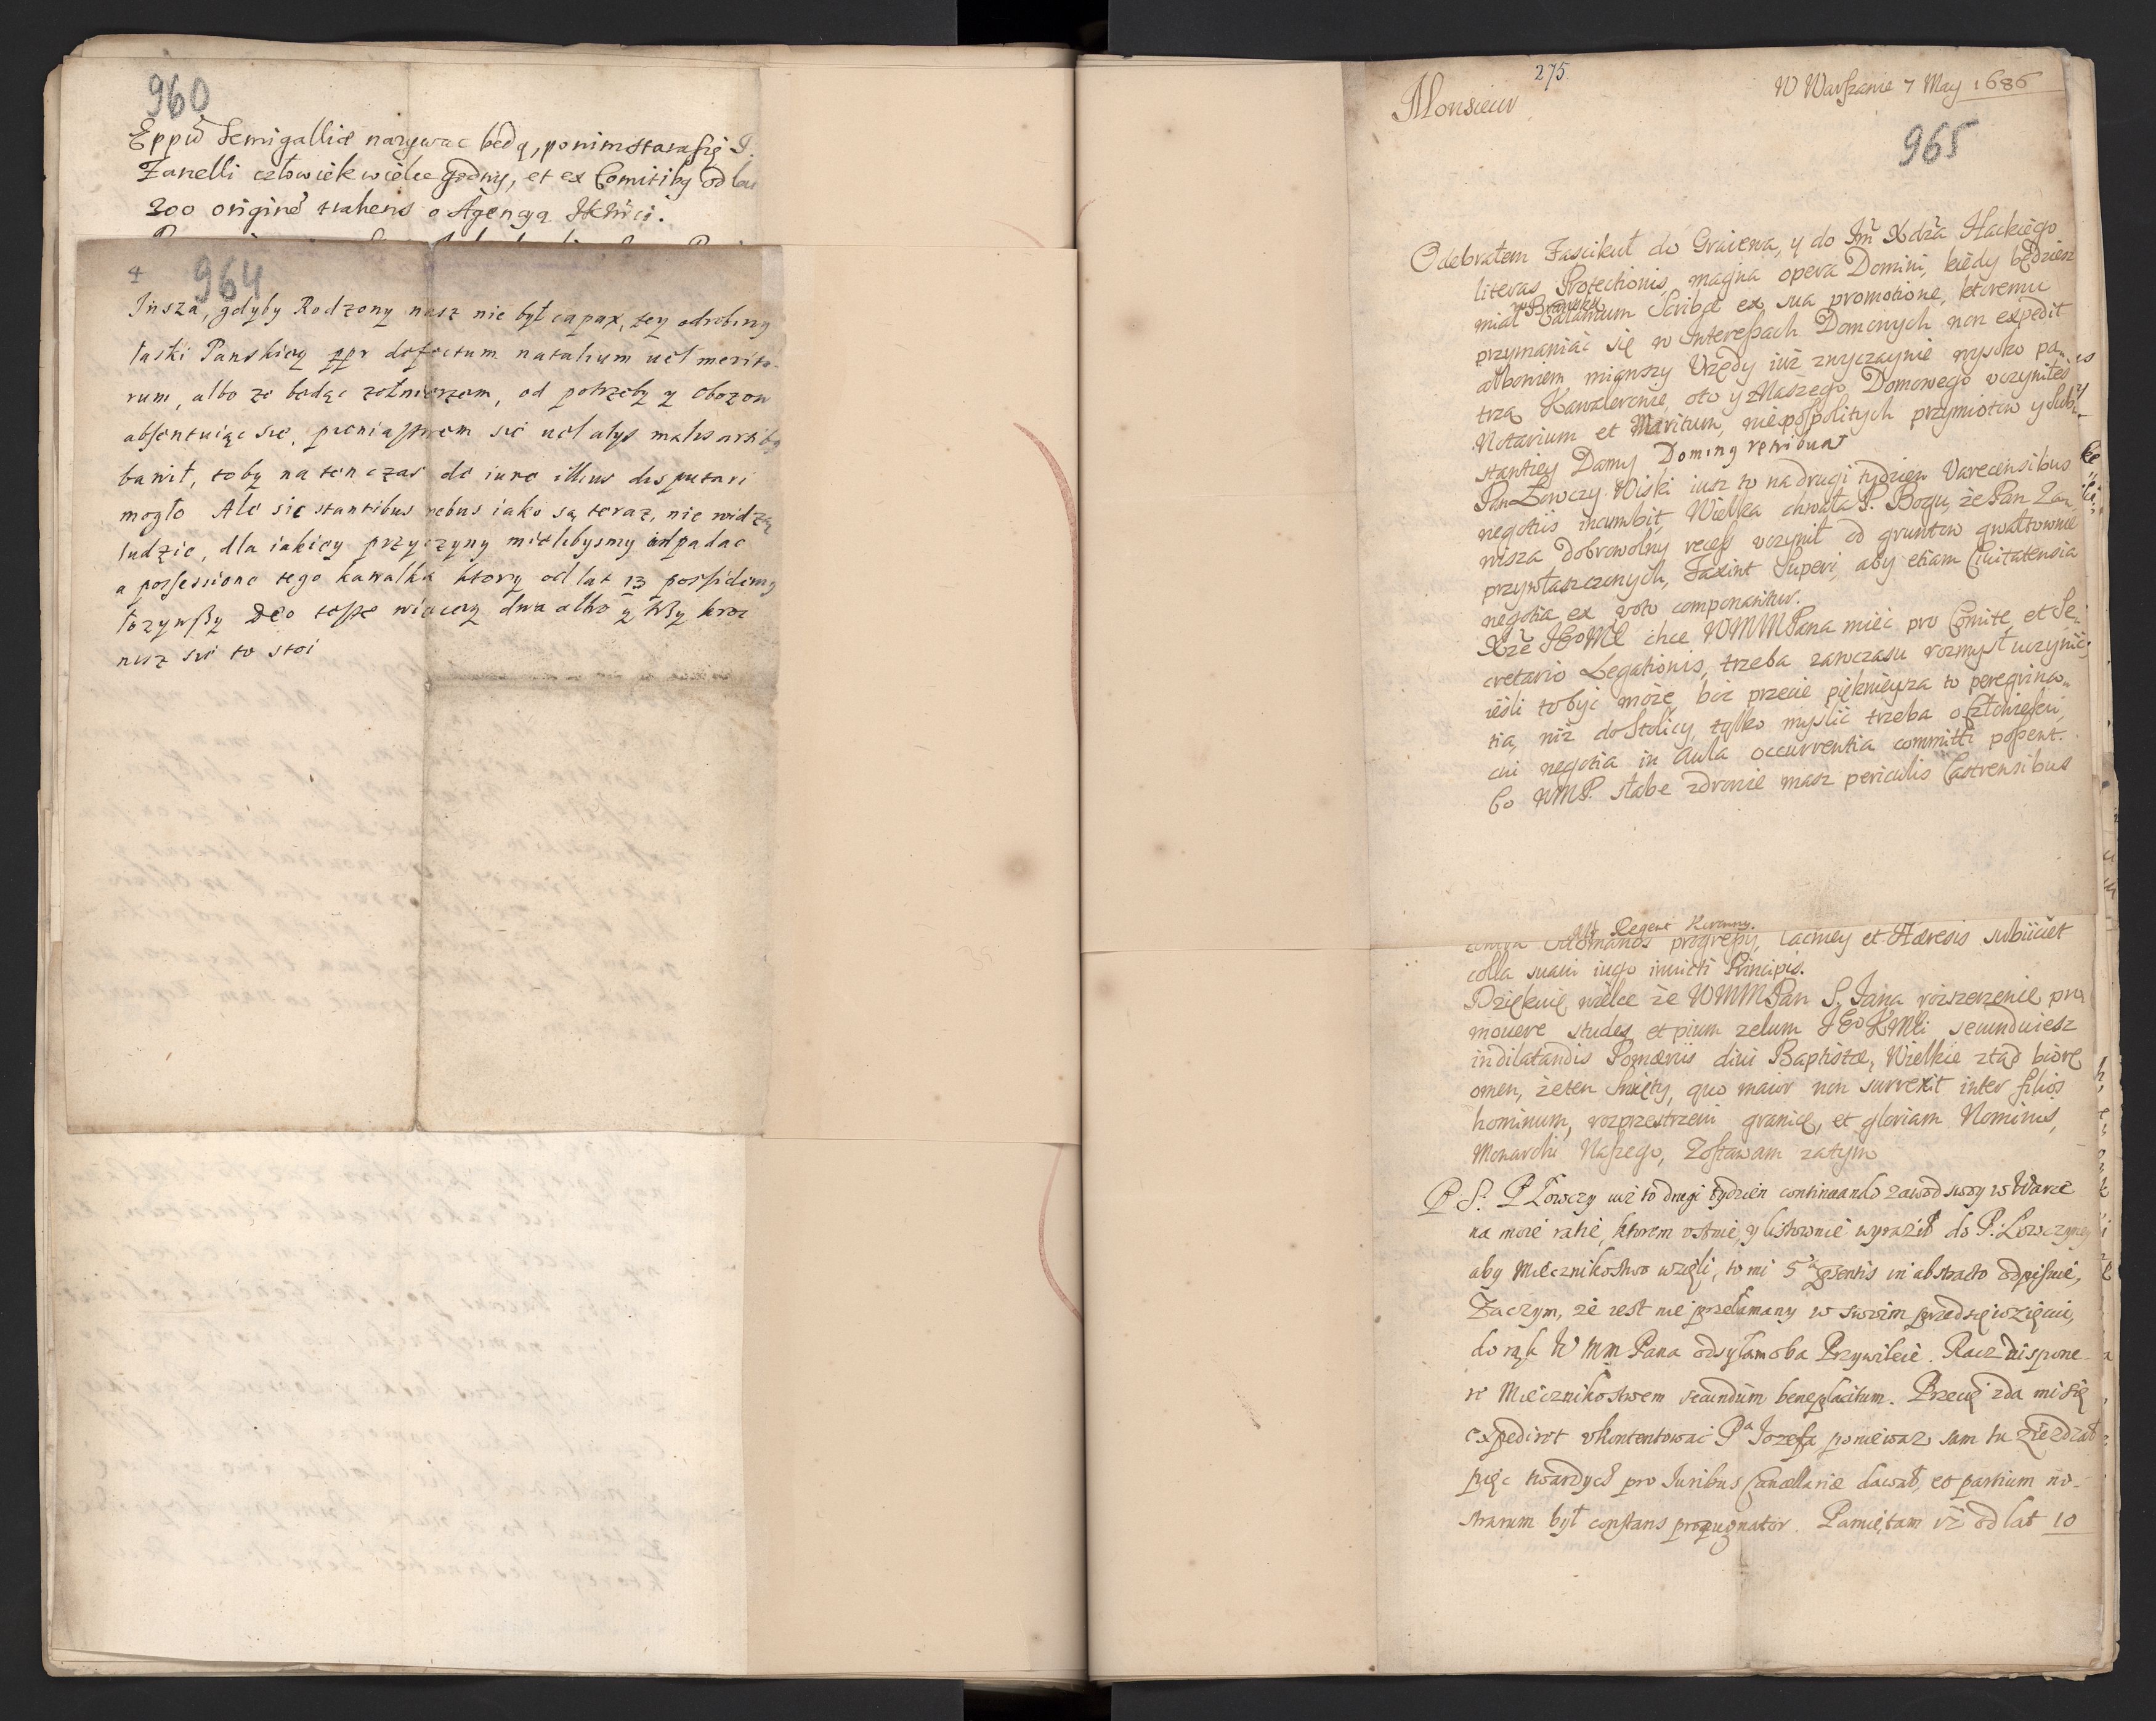 960
Eppū Semigalliæ nazywac będą, po nim stara się J.
Zanelli człowiek wielce godny, et ex Comitibg od lat
200 originē trahens o Agencyą JKMci.
4
964
Insza, gdyby Rodzony nasz nie był capax, tey odrobiny
łaski Panskiey ppr defectum natalium uel merito-
rum, albo ze będąc zołnierzem, od potrzeby y Obozow
absentuiąc się, pieniastwem się uel alys malis artibg
bawił, toby na ten czas de iure illius disputari
mogło Ale sic stantibus rebus iako są teraz, nie widzą
ludzie, dla iakiey przyczyny mielibysmy odpadac
a possessione tego kawalka ktory od lat 13 possidemg
łozywszy Deo teste wiecey dwa albo y trzy kroc
nisz sie to stoi
275
Monsieur
W Warszawie 7 May 1686
965
Odebrałem Fascikuł do Graiewa, y do Jm̃ Xdza Hackiego
literas Protectionis, magna opera Domini, kiedy będziesz
w Bransku
miał Calamum Scribæ ex sua promotione, ktoremu
przymawiać się w Interessach Domowych non expedit
albowiem mignszy Vrzędy iuż zwyczaynie wysoko pa-
trzą Kanzlerowie, oto y z Naszego Domowego vczyniłes
Notarium et Maritum, niepospolitych przymiotow y sub-
stantiey Damy Doming retribuat
Pan Łowczy Wiski iusz to na drugi tydzien Varecensibus
negotiis incumbit, Wielka chwała P. Bogu, że Pan Zaw-
wisza Dobrowolny recess vczynił od gruntow gwałtownie
przywłaszczonych, Faxint Superi, aby etiam Ciuitatensia
negotia ex voto componantur.
Xże JEoMć chce WMMPana mieć pro Comite, et Se-
cretario Legationis, trzeba zawczasu rozmysł uczynić;
ieśli to być może, boć przecie pięknieysza to peregrina-
tia, niż do Stolicy, tylko myslić trzeba o człowieku,
cui negotia in Aula occurrentia committi possent.
Bo WMP. słabe zdrowie masz periculis Castrensibus
Regent Koronny.
contra Ottomanos progressy, lacney et Hæresis subiiciet
colla suaui iugo inuicti Principis.
Dziękuię wielce że WMMPan S. Jana rozszerzenie pro
mouere studeg et pium zelum JEo KMći secunduiesz
in dilatandis Pomæriis diui Baptistæ, Wielkie ztąd biorę
omen, że ten Swięty, quo maior non surrexit inter filios
hominum, rozprzestrzeni granice, et gloriam Nominis,
Monarchi Naszego, Zostawam zatym
P. S. P Łowczy iuż to drugi tydzien continuando zawod swoy w Warce
na moie ratie, ktorem vstnie y listownie wyraził do P. Łowczyney
aby Miecznikostwo wzięli, to mi 5ª præsentis in abstracto odpisuie,
Zaczym, że iest nie przełamany w swoim przedsięwzięciu,
do rąk W MM Pana odsyłam oba Przywileie. Racz dispone-
re Miecznikostwem secundum beneplacitum. Przecię zda mi się
expediret vkontentować Pª Jozefa poniewasz sam tu ziezdzał
pięc twardych pro Juribus Cancellariæ dawał, et partium no-
strarum był constans propugnator. Pamiętam iż od lat 10